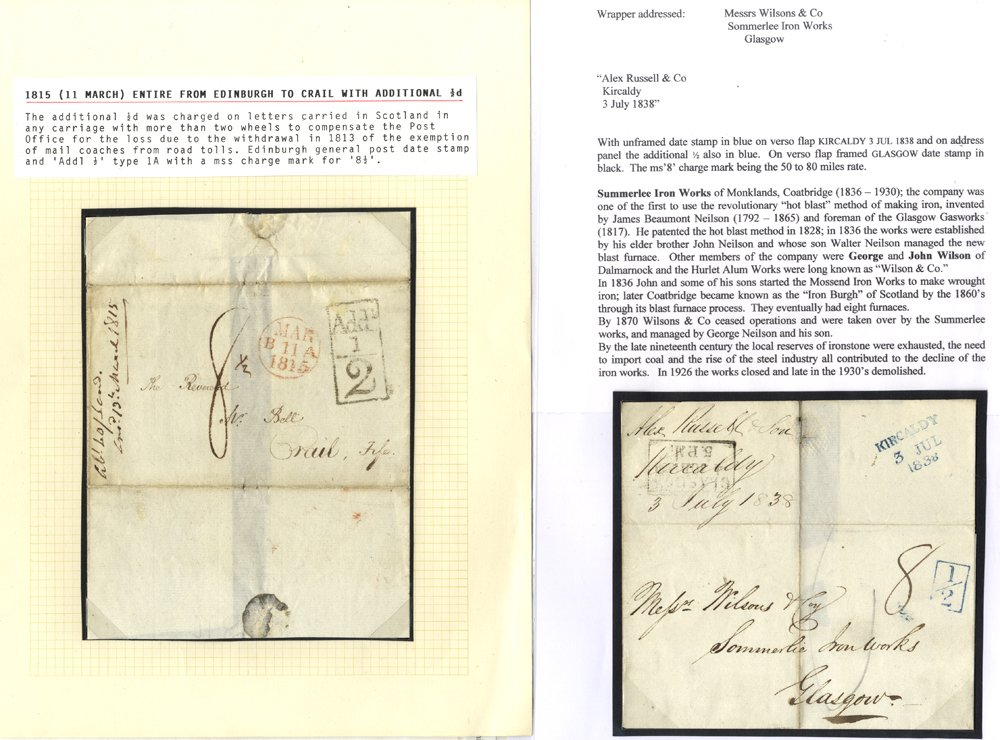 1815 (11 MARCH) ENTIRE FROM EDINBURGH TO CRAIL WITH ADDITIONAL ½d
The additional ½d was charged on letters carried in Scotland in
any carriage with more than two wheels to compensate the Post
Office for the loss due to the withdrawal in 1813 of the exemption
of mail coaches from road tolls. Edinburgh general post date stamp
and 'Addl ½' type 1A with a mss charge mark for '8½'.
Addl
1
2
MAR
B 11 A
1815
8 ½
The Reverend
Mr. Bell
Crail, Fife.
13th March 1815
Wrapper addressed: Messrs Wilsons & Co
Sommerlee Iron Works
Glasgow
“Alex Russell & Co
Kircaldy
3 July 1838”
With unframed date stamp in blue on verso flap KIRCALDY 3 JUL 1838 and on address
panel the additional ½ also in blue. On verso flap framed GLASGOW date stamp in
black. The ms'8' charge mark being the 50 to 80 miles rate.
Summerlee Iron Works of Monklands, Coatbridge (1836 – 1930); the company was
one of the first to use the revolutionary “hot blast” method of making iron, invented
by James Beaumont Neilson (1792 – 1865) and foreman of the Glasgow Gasworks
(1817). He patented the hot blast method in 1828; in 1836 the works were established
by his elder brother John Neilson and whose son Walter Neilson managed the new
blast furnace. Other members of the company were George and John Wilson of
Dalmarnock and the Hurlet Alum Works were long known as “Wilson & Co.”
In 1836 John and some of his sons started the Mossend Iron Works to make wrought
iron; later Coatbridge became known as the “Iron Burgh” of Scotland by the 1860’s
through its blast furnace process. They eventually had eight furnaces.
By 1870 Wilsons & Co ceased operations and were taken over by the Summerlee
works, and managed by George Neilson and his son.
By the late nineteenth century the local reserves of ironstone were exhausted, the need
to import coal and the rise of the steel industry all contributed to the decline of the
iron works. In 1926 the works closed and late in the 1930’s demolished.
Alex Russell & Son
Kircaldy
3 July 1838
GLASGOW
5. P.M.
KIRCALDY
3 JUL
1838
8
1
2
Messrs Wilsons & Coy
Sommerlie Iron Works
Glasgow